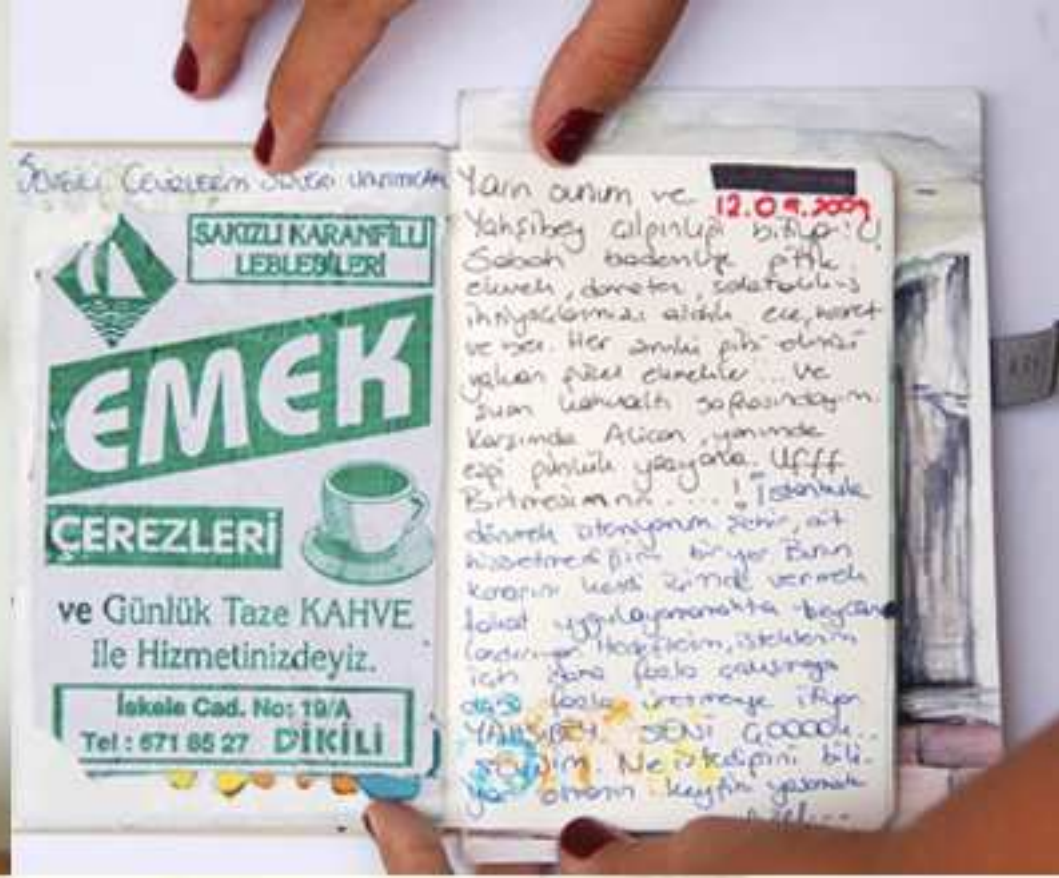 SAKIZLI KARANFİLLİ
LEBLEBİLERİ
EMEK
ÇEREZLERİ
ve Günlük Taze KAHVE
ile Hizmetinizdeyiz.
İskele Cad. No: 19/A
Tel: 671 85 27 DİKİLİ
Yarın ve
12.09.2009
Yahşibey çılgınlığı bitiyor
Sabah gittik
ekmek, domates, salatalık
ihtiyaçlarımızı aldık ece,
ve ben. Her gibi elimizi
yakan güzel ekmekler... ve
şuan kahvaltı sofrasındayım.
Karşımda Alican, yanımda
ezgi günlük yazıyorlar. Ufff
Bitmesinnn....! İstanbula
dönmek istemiyorum şehir, ait
hissetmediğim bir yer
kararını kendi içimde vermek
fakat uygulayamamakta
Hedeflerim, isteklerim
için daha fazla çalışmaya
daha fazla üretmeye itiyor
YAHŞİBEY SENİ ÇOOOOK..
Ne istediğini bili-
yor olmanın keyfini yaşamak